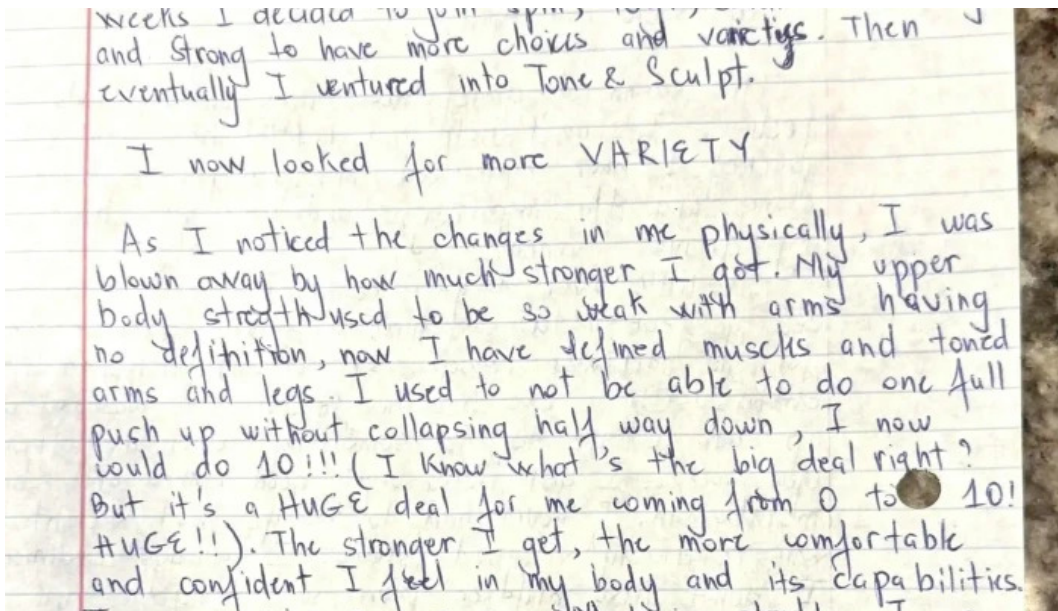 weeks I decided to join spin,
and Strong to have more choices and varietys. Then
eventually I ventured into Tone & Sculpt.
I now looked for more VARIETY
As I noticed the changes in me physically, I was
blown away by how much stronger I got. My upper
body stregth used to be so weak with arms having
no definition, now I have defined muscles and toned
arms and legs. I used to not be able to do one full
push up without collapsing half way down, I now
could do 10!!! (I know what's the big deal right?
But it's a HUGE deal for me coming from 0 to 10!
HUGE!!). The stronger I get, the more comfortable
and confident I feel in my body and its capabilities.